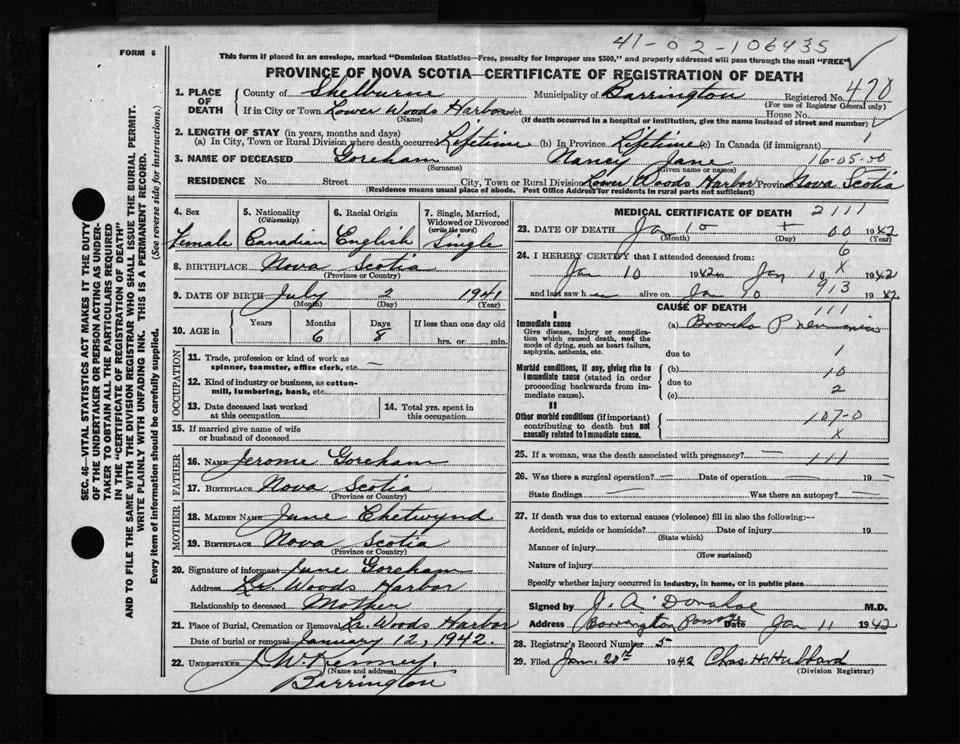 41-02-106435
FORM 6
This form if placed in an envelope, marked "Dominion Statistics—Free, penalty for improper use $300," and properly addressed will pass through the mail "FREE"
PROVINCE OF NOVA SCOTIA—CERTIFICATE OF REGISTRATION OF DEATH
SEC. 46—VITAL STATISTICS ACT MAKES IT THE DUTY
OF THE UNDERTAKER OR PERSON ACTING AS UNDER-
TAKER TO OBTAIN ALL THE PARTICULARS REQUIRED
IN THE "CERTIFICATE OF REGISTRATION OF DEATH"
AND TO FILE THE SAME WITH THE DIVISION REGISTRAR WHO SHALL ISSUE THE BURIAL PERMIT.
WRITE PLAINLY WITH UNFADING INK. THIS IS A PERMANENT RECORD.
Every item of information should be carefully supplied. (See reverse side for instructions.)
1. PLACE OF DEATH County of Shelburne Municipality of Barrington Registered No. 470
(For use of Registrar General only)
If in City or Town Lower Woods Harbor Street House No.
(Name) (If death occurred in a hospital or institution, give the name instead of street and number)
2. LENGTH OF STAY (in years, months and days)
(a) In City, Town or Rural Division where death occurred Lifetime (b) In Province Lifetime (c) In Canada (if immigrant) 1
3. NAME OF DECEASED Goreham Nancy Jane 16-05-00
(Surname) (Given name or names)
RESIDENCE No. Street City, Town or Rural Division Lower Woods Harbor Province Nova Scotia
(Residence means usual place of abode. Post Office Address for residents in rural parts not sufficient)
4. Sex 5. Nationality (Citizenship) 6. Racial Origin 7. Single, Married, Widowed or Divorced (write the word)
Female Canadian English Single
8. BIRTHPLACE Nova Scotia
(Province or Country)
9. DATE OF BIRTH July 2 1941
(Month) (Day) (Year)
10. AGE in Years Months Days If less than one day old
6 8 hrs. or min.
OCCUPATION
11. Trade, profession or kind of work as spinner, teamster, office clerk, etc. —
12. Kind of industry or business, as cotton-mill, lumbering, bank, etc.
13. Date deceased last worked at this occupation 14. Total yrs. spent in this occupation
15. If married give name of wife or husband of deceased
FATHER
16. Name Jerome Goreham
17. Birthplace Nova Scotia
(Province or Country)
MOTHER
18. Maiden Name June Chetwynd
19. Birthplace Nova Scotia
(Province or Country)
20. Signature of informant June Goreham
Address Lr. Woods Harbor
Relationship to deceased Mother
21. Place of Burial, Cremation or Removal Lr. Woods Harbor
Date of burial or removal January 12, 1942.
22. UNDERTAKER J W. Kenney,
(Name and address)
Barrington
MEDICAL CERTIFICATE OF DEATH 2111
23. DATE OF DEATH Jan 10 + 00 1942
(Month) (Day) (Year)
24. I HEREBY CERTIFY that I attended deceased from: 6
Jan 10 1942 to Jan 10 X 1942
and last saw her alive on Jan 10 913 1942
CAUSE OF DEATH 111
I
Immediate cause (a) Broncho Pneumonia
Give disease, injury or complication which caused death, not the mode of dying, such as heart failure, asphyxia, asthenia, etc.
due to 1
Morbid conditions, if any, giving rise to immediate cause (stated in order proceeding backwards from immediate cause).
(b) 10
due to
(c) 2
II
Other morbid conditions (if important) contributing to death but not causally related to immediate cause.
107-0
X
25. If a woman, was the death associated with pregnancy? — 111
26. Was there a surgical operation? — Date of operation — 19 —
State findings — Was there an autopsy? —
27. If death was due to external causes (violence) fill in also the following:—
Accident, suicide or homicide? Date of injury 19
(State which)
Manner of injury
(How sustained)
Nature of injury
Specify whether injury occurred in industry, in home, or in public place
Signed by J. A. Donahoe M.D.
Address Barrington Passage Date Jan 11 1942
28. Registrar's Record Number 5
29. Filed Jan. 20th 1942 Chas. H. Hubbard
(Division Registrar)